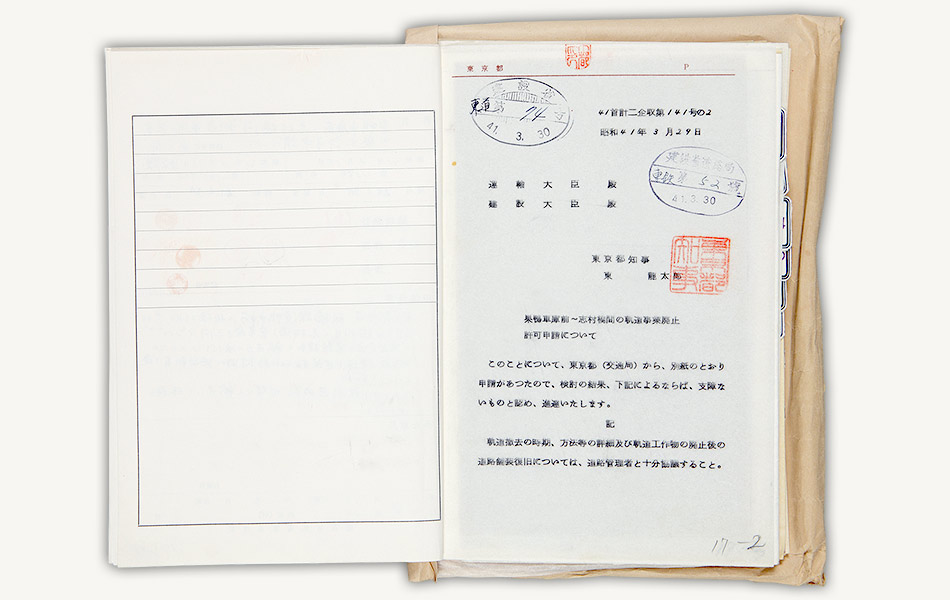 東京都
P
建設省
東道第 74 号
41. 3. 30
41首計二企収第141号の2
昭和41年3月29日
東鉄第 52 号
41. 3. 30
運輸大臣殿
建設大臣殿
東京都知事
東 龍太郎
東京都知事
巣鴨車庫前～志村橋間の軌道事業廃止
許可申請について
このことについて、東京都(交通局)から、別紙のとおり
申請があつたので、検討の結果、下記によるならば、支障な
いものと認め、進達いたします。
記
軌道撤去の時期、方法等の詳細及び軌道工作物の廃止後の
道路舗装復旧については、道路管理者と十分協議すること。
17-2